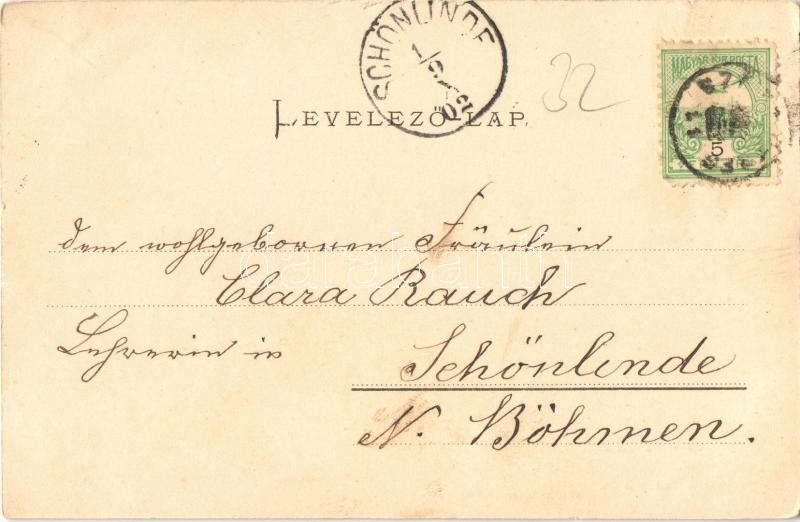 SCHÖNLINDE
1/9
02
32
MAGYAR KIR. POSTA
5
LEVELEZŐ-LAP.
dem wohlgebornen Fräulein
Clara Rauch
Lehrerin in
Schönlinde
N. Böhmen.
darabanth